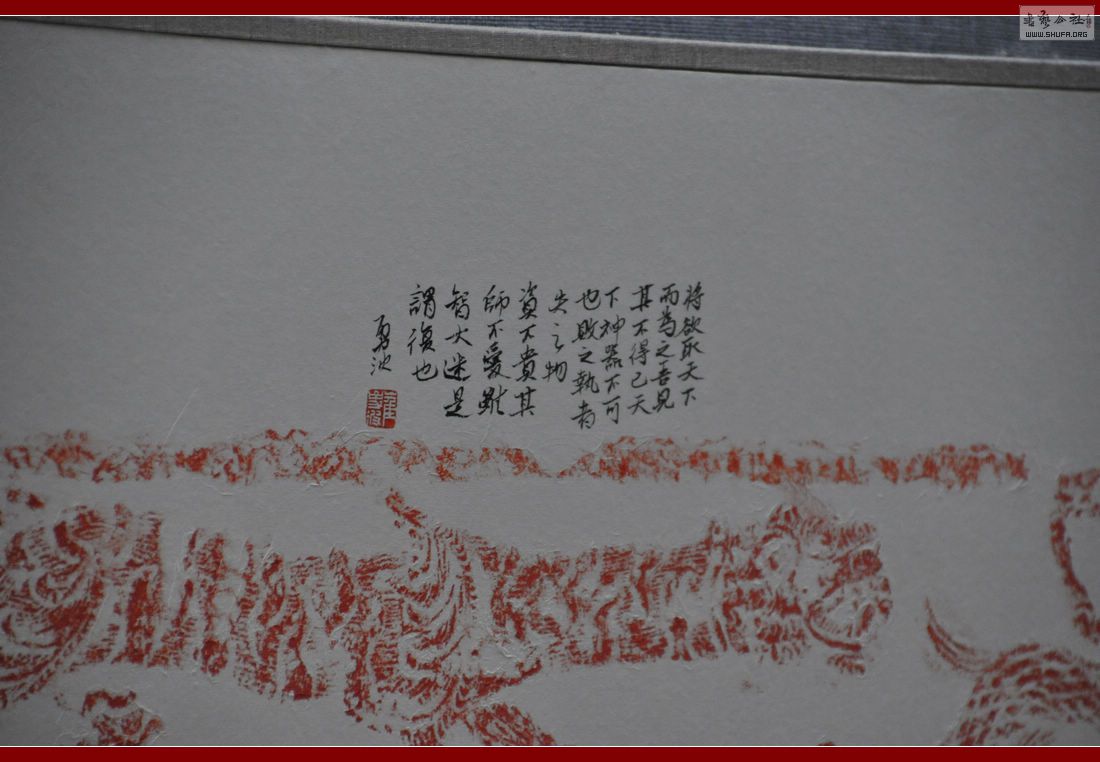 将欲取天下
而為之吾見
其不得已天
下神器不可
也敗之執者
失之物
資不貴其
師不愛雖
智大迷是
謂復也
書藝公社
WWW.SHUFA.ORG